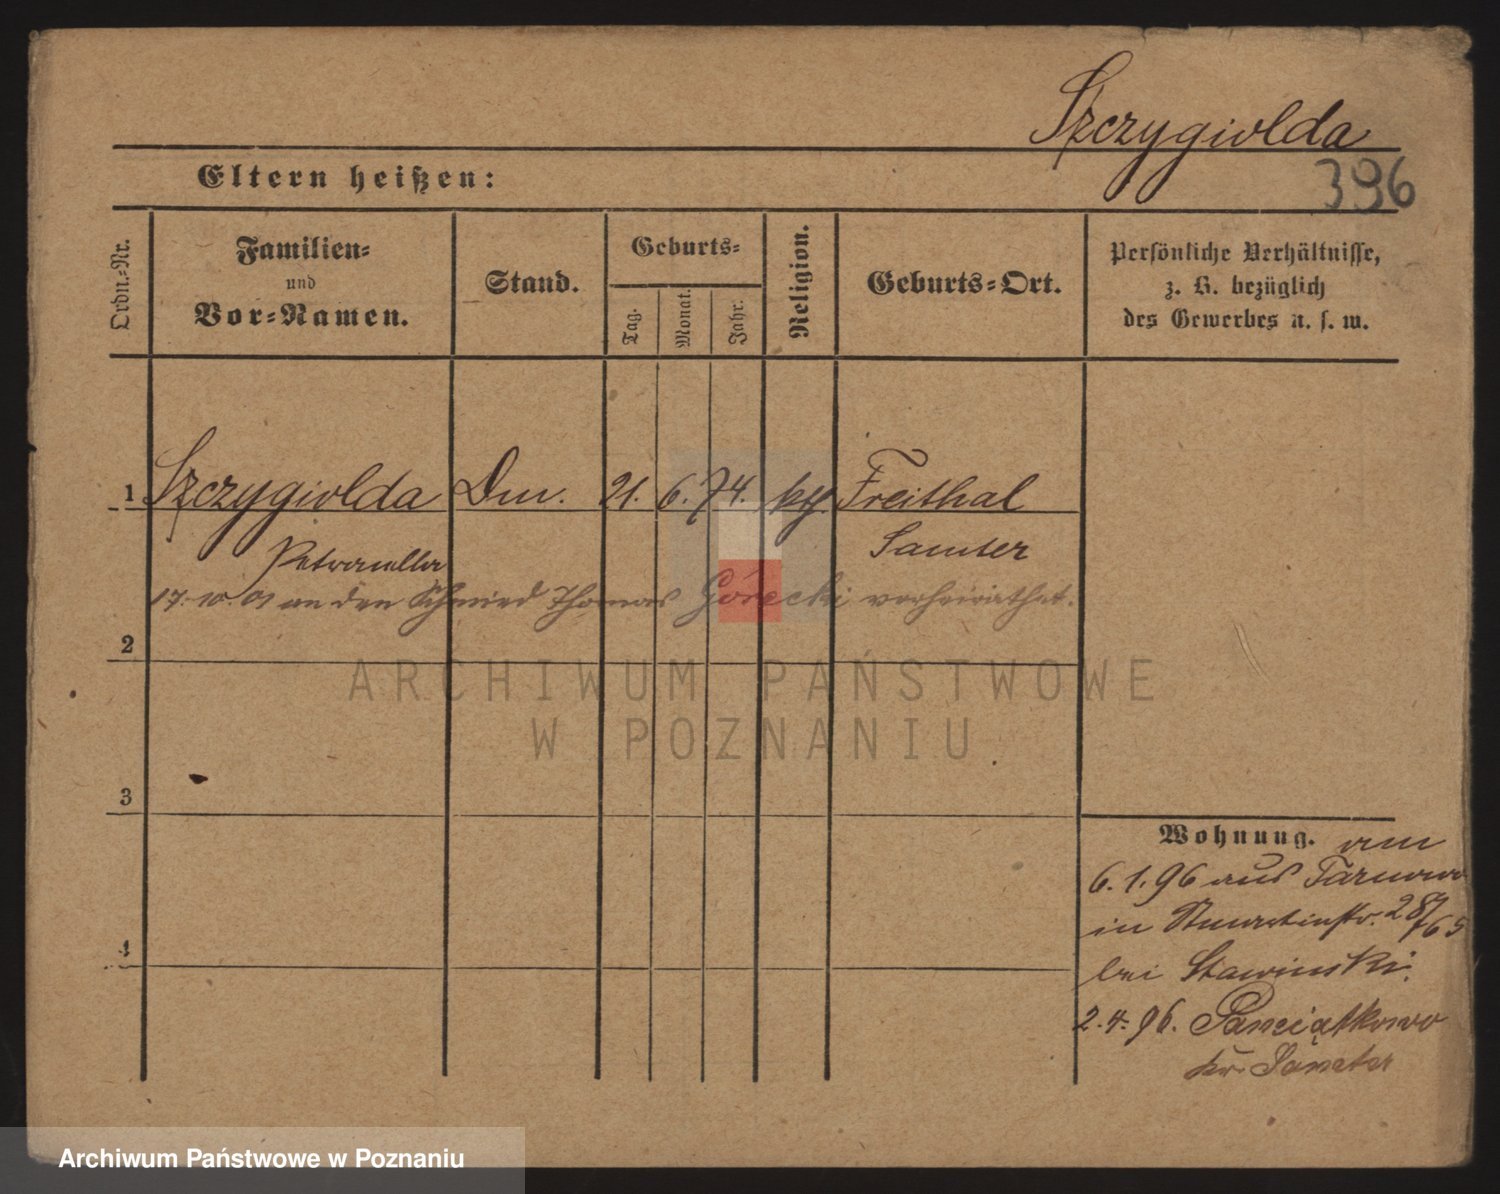 Szczygielda
396
Eltern heißen:
Ordn.-Nr.
Familien- und Vor-Namen.
Stand.
Geburts-
Tag.
Monat.
Jahr.
Religion.
Geburts-Ort.
Persönliche Verhältnisse,
z. B. bezüglich
des Gewerbes u. s. w.
1 Szczygielda 21. 6. 74. Freithal
Petronella Samter
17. 10. 01 an den Schmied Thomas Górecki verheirathet.
2
3
4
Wohnung. am
6. 1. 96 aus Tarnowo
in
bei Stawinski.
2. 4. 96.
Kr. Samter
ARCHIWUM PAŃSTWOWE
W POZNANIU
Archiwum Państwowe w Poznaniu